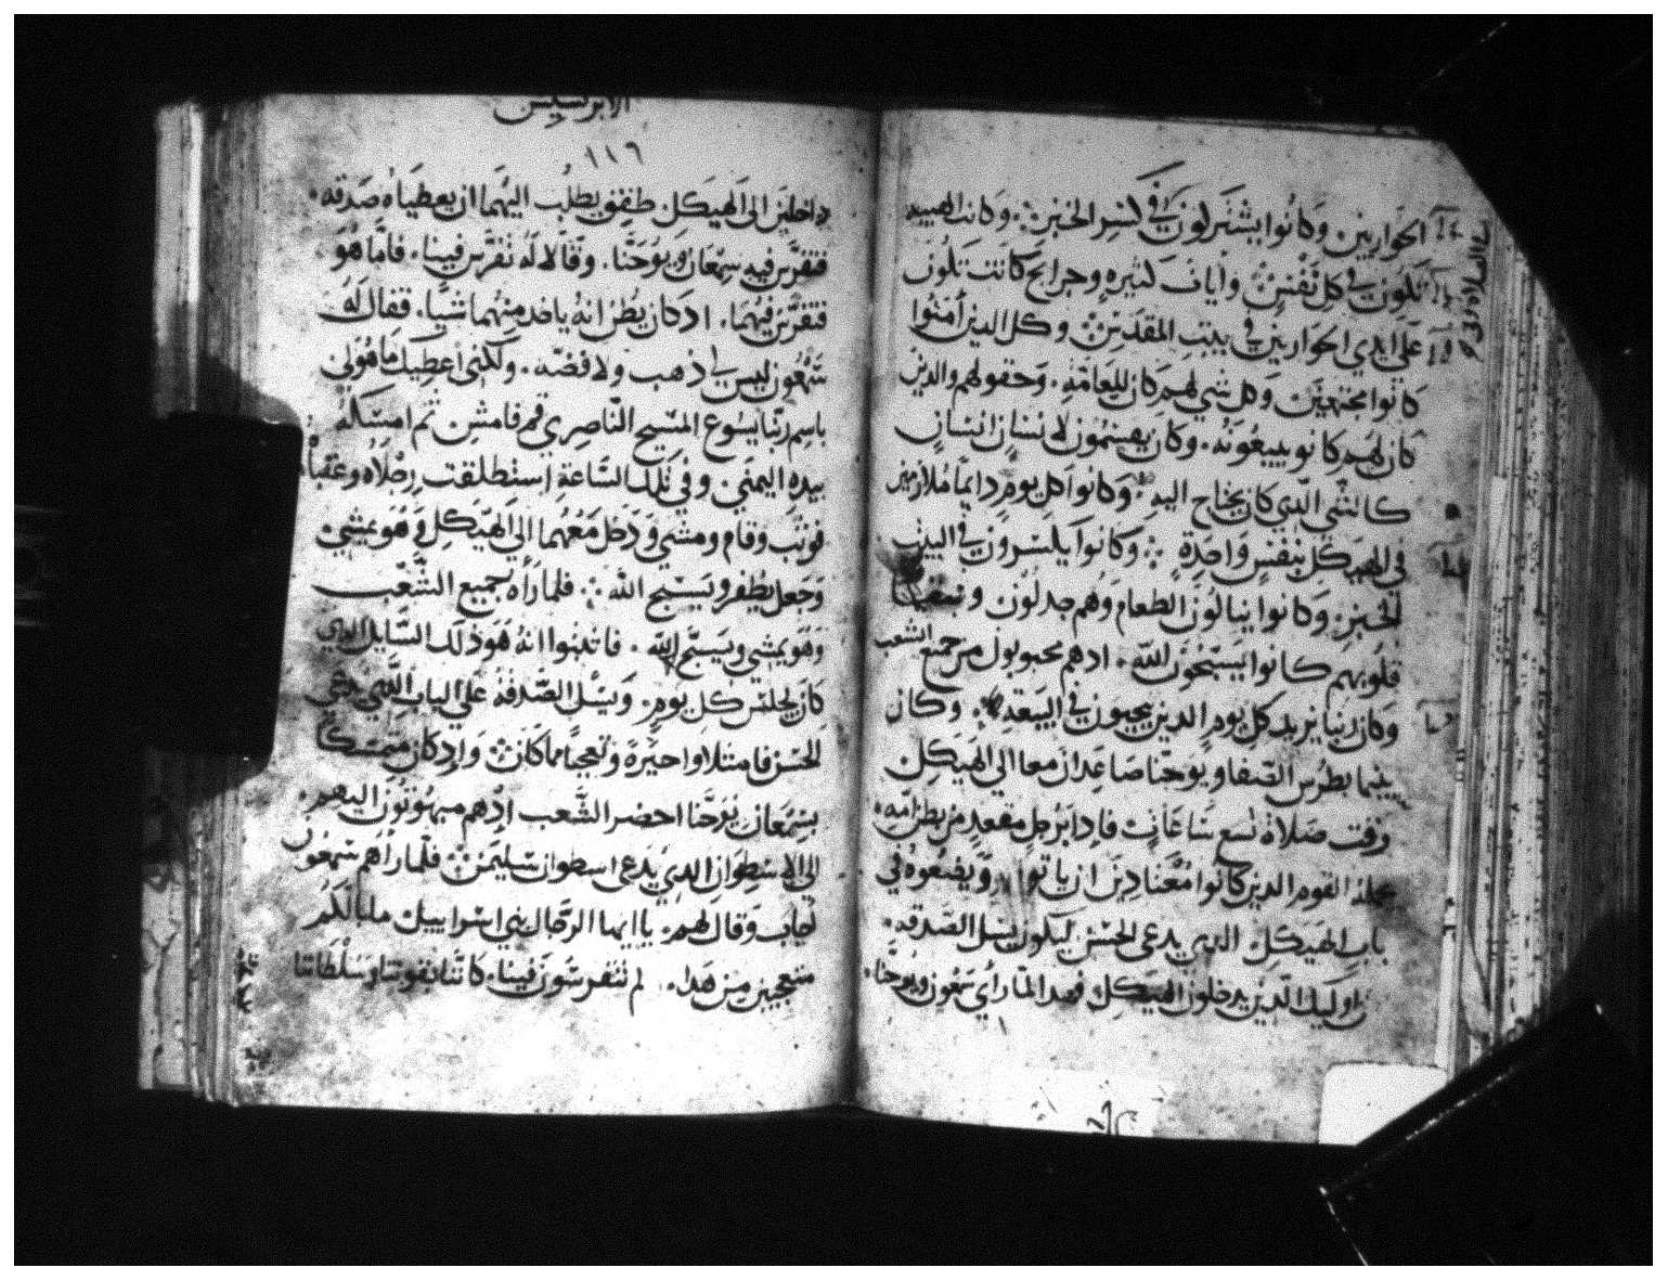 الحواريين. وكانوا يشتركون في كسر الخبز. وكانت الهيبه
تكون في كل نفس وايات كثيره وجرايح كانت تكون
على ايدي الحواريين في بيت المقدس وكل الدين امنوا
كانوا مجتمعين وكل شي لهم كان للعامه. وحقولهم والدين
كان لهم كانو يبيعونه. وكان يقسمون لانسان انسان
كالشي الدي كان يحتاج اليه. وكانوا كل يوم دايما ملازمين
في الهيكل بنفس واحدة. وكانوا يكسرون في البيت
الخبز. وكانوا ينالون الطعام وهم جدلون
قلوبهم كانوا يسبحون الله. ادهم محبوبون من جميع الشعب
وكان ربنا يزيد كل يوم الدين يحيون في البيعه. وكان
بينما بطرس الصفا ويوحنا صاعدان معا الى الهيكل
وقت صلاة تسع ساعات فادا برجل مقعد من بطن امه
يحمله القوم الدين كانوا معتادين ان ياتوا ويضعوه في
باب الهيكل الدي يدعى الحسن ليكون يسل الصدقه.
اوليك الدين يدخلون الهيكل فهدا لما راي سمعون ويوحنا
الابركسيس
١١٦
داخلين الى الهيكل. طفق يطلب اليهما ان يعطياه صدقه.
فتفرس فيه سمعان ويوحنا. وقالا له تفرس فينا. فاما هو
فتفرس فيهما. ادكان يظن انه ياخد منهما شيا. فقال له
سمعون ليس لي ذهب ولا فضه. ولكني اعطيك ما هو لي
باسم ربنا يسوع المسيح الناصري قم فامش ثم امسكه
بيده اليمنى. وفي تلك الساعة استطلقت رجلاه وعقباه
فوثب وقام ومشى ودخل معهما الى الهيكل وهو يمشي
وجعل يطفر ويسبح الله. فلما راه جميع الشعب
وهو يمشي ويسبح الله. فاثبتوا انه هو ذلك السايل الدي
كان يجلس كل يوم. ويسل الصدقة على الباب الدي يدعى
الحسن فامتلاوا حيرة وتعجبا مما كان واد كان متمسكا
بسمعان يوحنا احضر الشعب ادهم مبهوتون اليهم.
الى الاسطوان الدي يدعى اسطوان سليمن فلما راهم سمعون
اجاب وقال لهم. يا ايها الرجال بني اسراييل ما بالكم
متعجبين من هدا. لم تتفرسون فينا. كاننا بقوتنا وسلطاننا